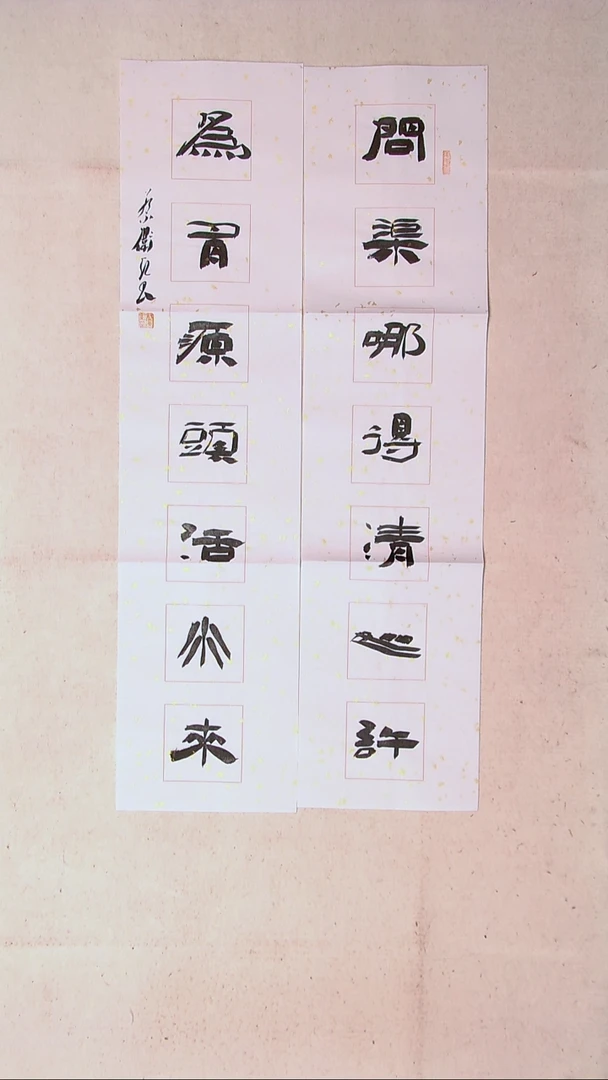 問渠哪得清心許
為有源頭活水來